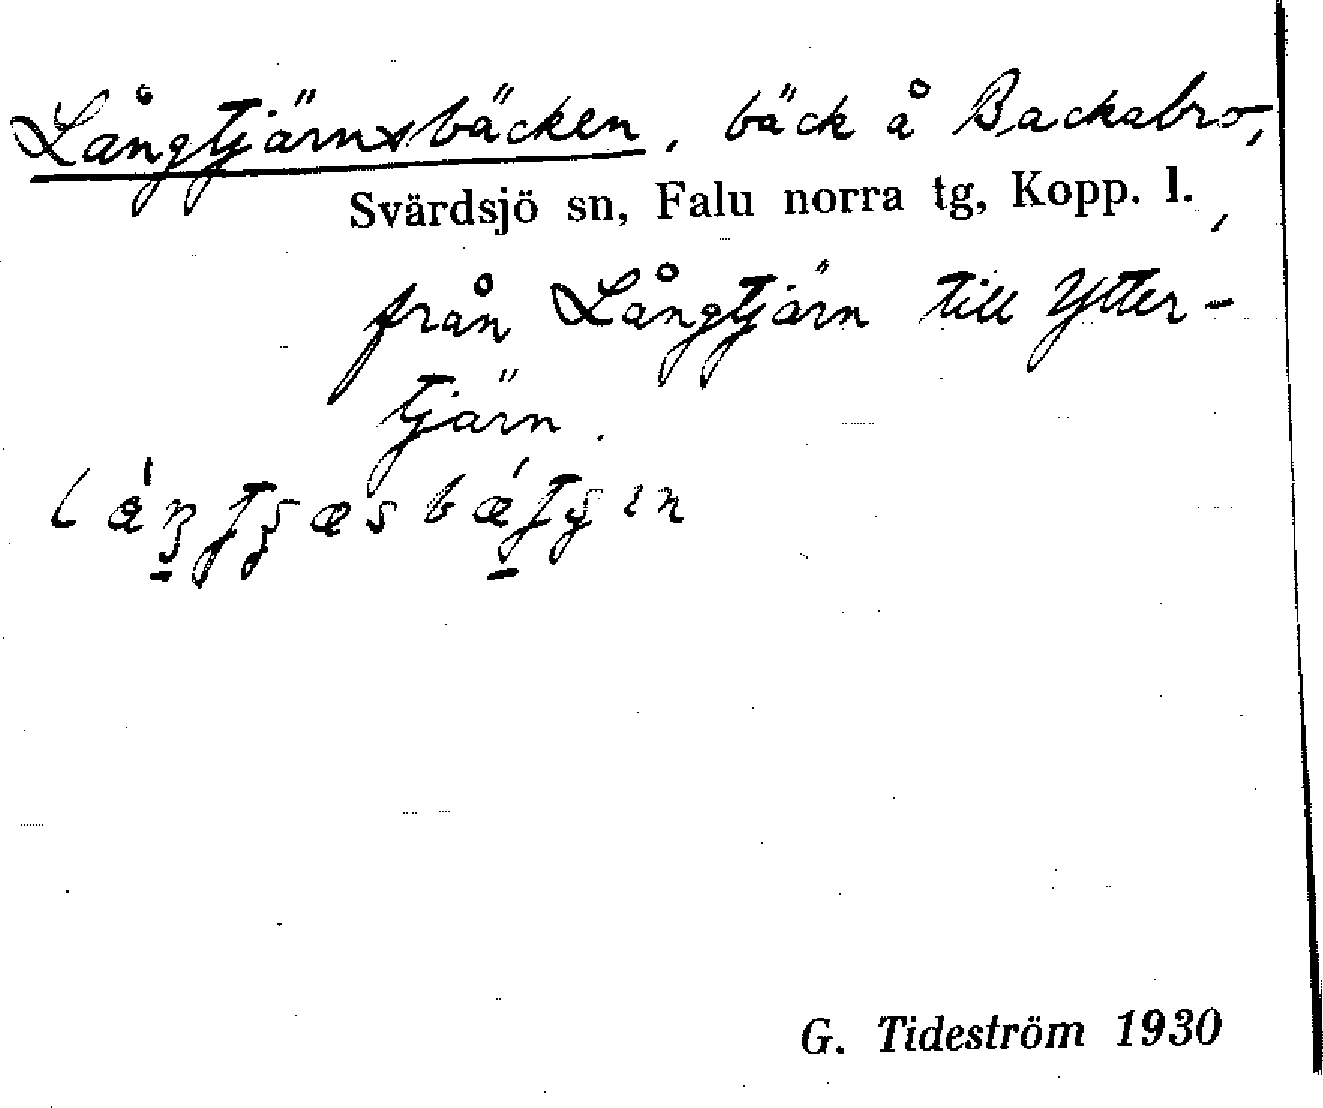 Långtjärnsbäcken, bäck å Backabro,
Svärdsjö sn, Falu norra tg, Kopp. l.,
från Långtjärn till Ytter-
tjärn.
G. Tideström 1930